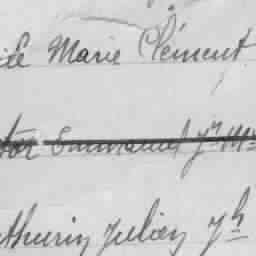 ile Marie Clément
tor Emmanuel Jh M
thurin Julien Jh